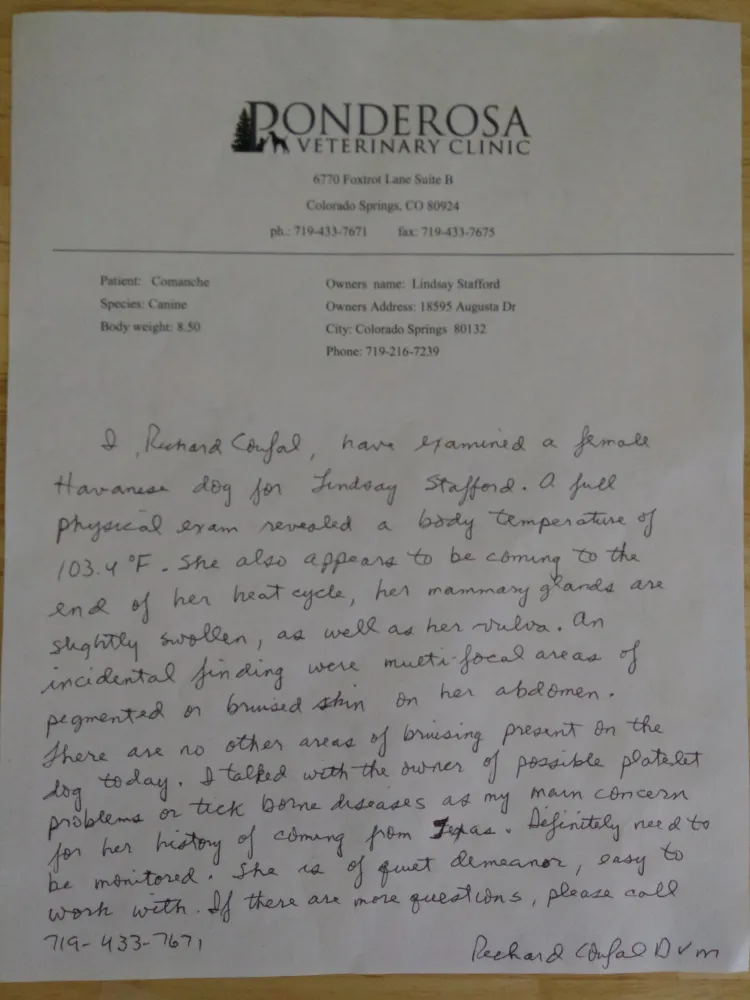 PONDEROSA
VETERINARY CLINIC
6770 Foxtrot Lane Suite B
Colorado Springs, CO 80924
ph.: 719-433-7671 fax: 719-433-7675
Patient: Comanche
Species: Canine
Body weight: 8.50
Owners name: Lindsay Stafford
Owners Address: 18595 Augusta Dr
City: Colorado Springs 80132
Phone: 719-216-7239
I, Richard Coufal, have examined a female
Havanese dog for Lindsay Stafford. A full
physical exam revealed a body temperature of
103.4 °F. She also appears to be coming to the
end of her heat cycle, her mammary glands are
slightly swollen, as well as her vulva. An
incidental finding were multi-focal areas of
pegmented or bruised skin on her abdomen.
There are no other areas of bruising present on the
dog today. I talked with the owner of possible platelet
problems or tick borne diseases as my main concern
for her history of coming from Texas. Definitely need to
be monitored. She is of quiet demeanor, easy to
work with. If there are more questions, please call
719-433-7671
Richard Coufal DVM